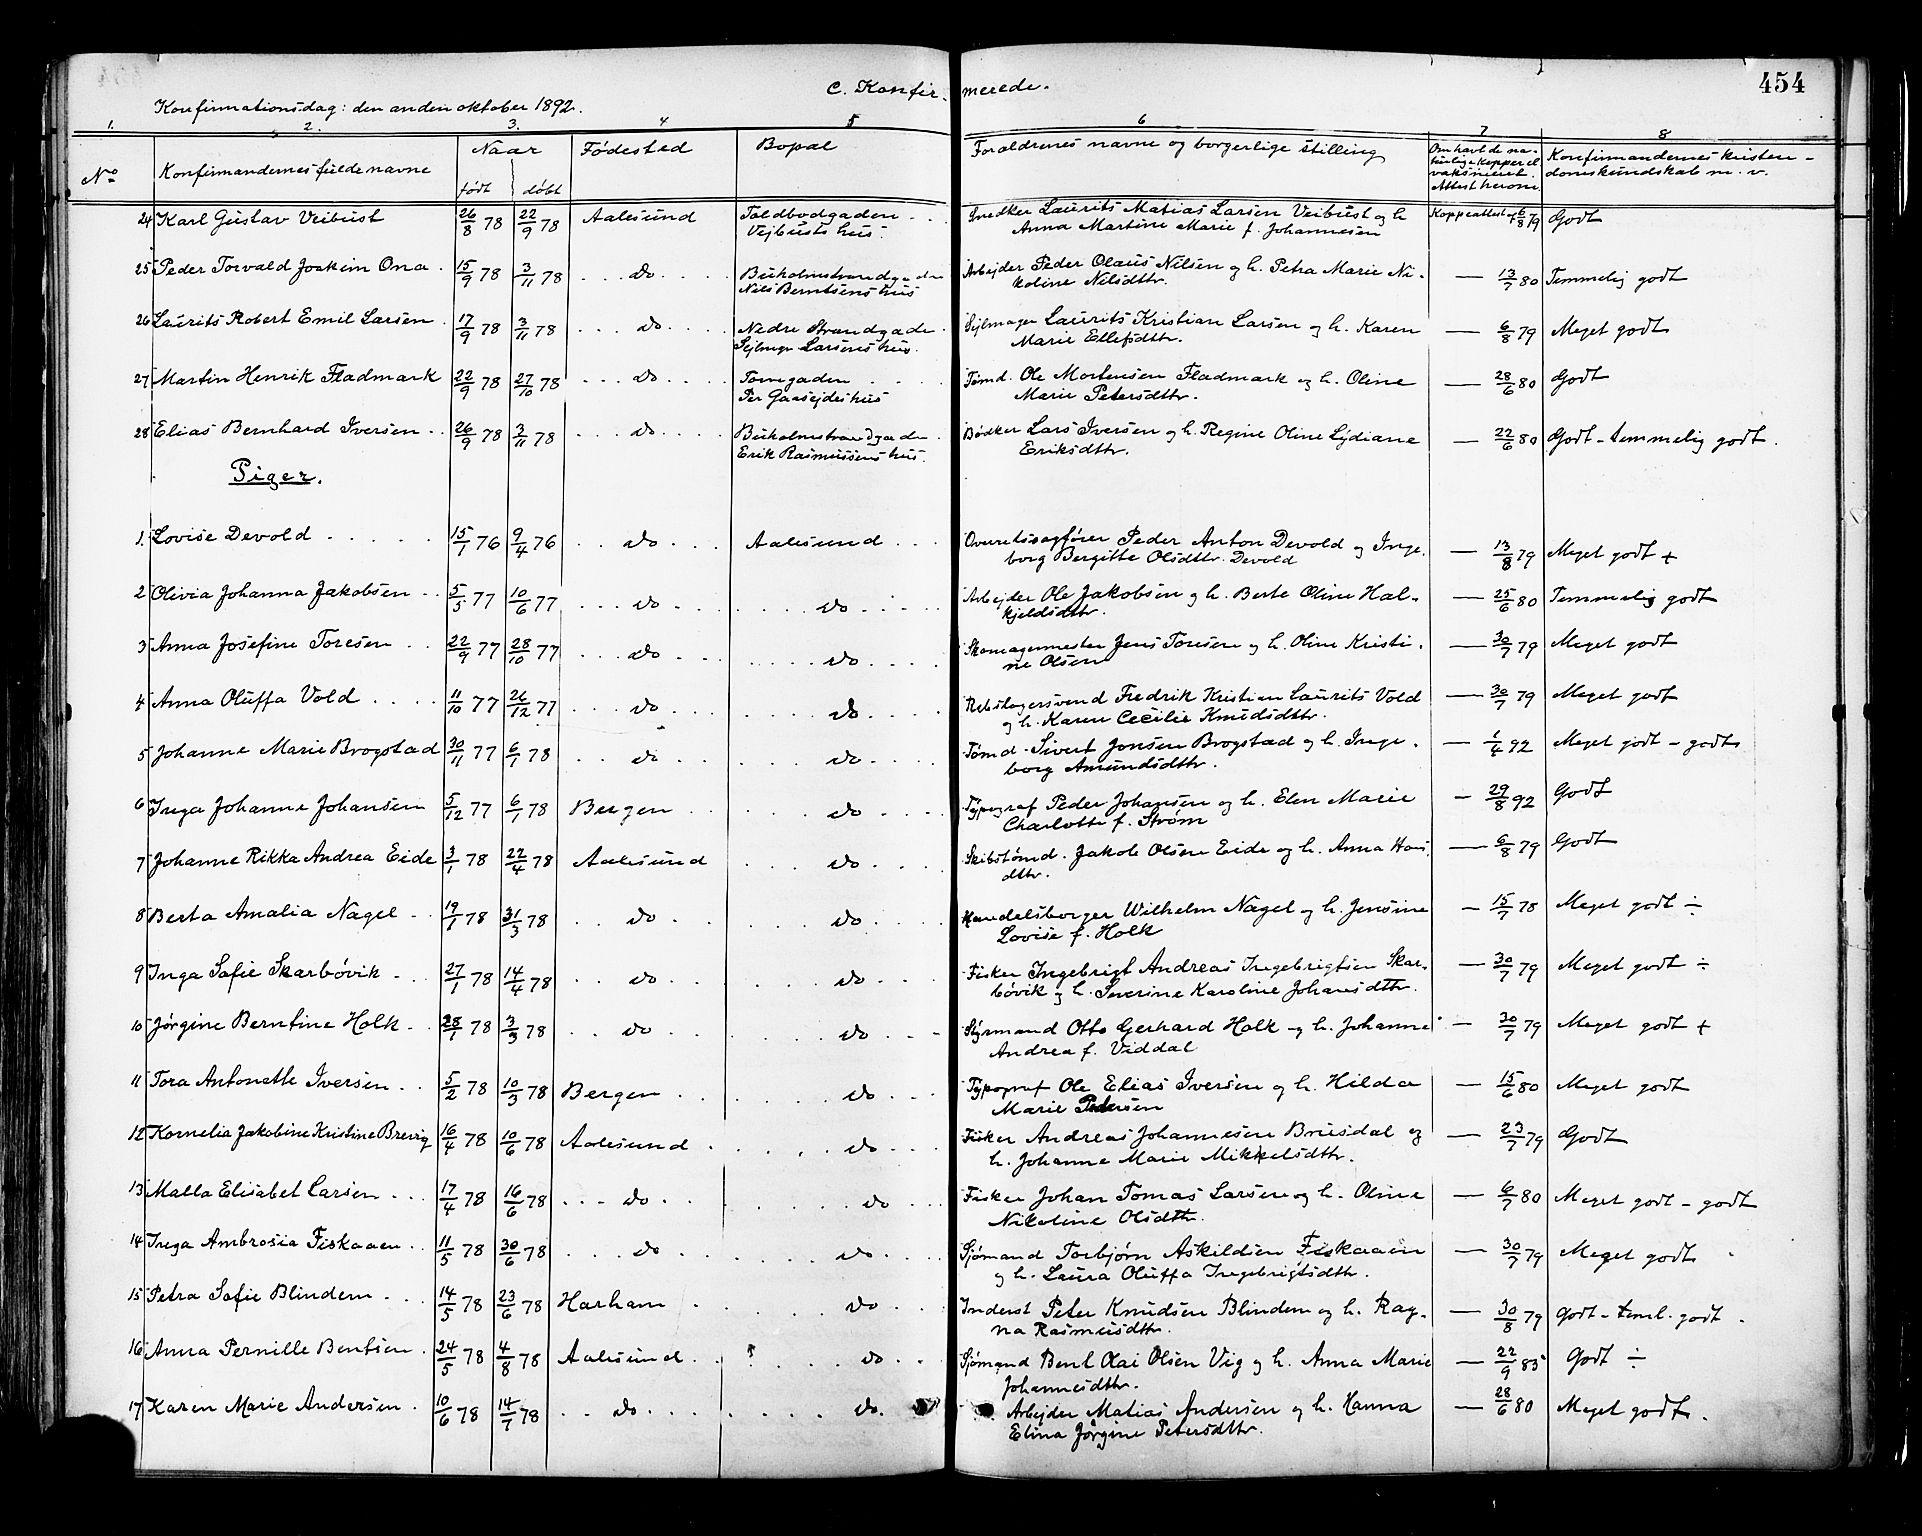 C. Konfirmerede. 454
Konfirmationsdag: den anden oktober 1892.
1. 2. 3. 4 5 6 7 8
No Konfirmandernes fulde navne Naar født døbt Fødested Bopæl Forældrenes navne og borgerlige stilling Om havt de naturlige kopper el vaksineret. Attest herom Konfirmandernes kristendomskundskab m. v.
24 Karl Gustav Veibust 26/8 78 22/9 78 Aalesund Toldbodgaden Snedker Laurits Matias Larsen Veibust og h. Koppeattest af 6/8 79 Godt
Vejbusts hus. Anna Martine Marie f. Johannesen
25 Peder Torvald Joakim Ona 15/9 78 3/11 78 do Buholmstrandgaden Arbejder Peder Olaus Nilsen og h. Petra Marie Ni- — 13/7 80 Temmelig godt
Nils Berntsens hus koline Nilsdttr.
26 Laurits Robert Emil Larsen 17/9 78 3/11 78 do Nedre Strandgade Sejlmager Laurits Kristian Larsen og h. Karen — 6/8 79 Meget godt
Sejlmgr Larsens hus. Marie Ellefsdttr.
27 Martin Henrik Fladmark 22/9 78 27/10 78 do Torvegaden Tømd. Ole Mortensen Fladmark og h. Oline — 28/6 80 Godt
Per Gaasejdes hus Marie Petersdttr.
28 Elias Bernhard Iversen 26/9 78 3/11 78 do Buholmstrandgaden Bødker Lars Iversen og h. Regine Oline Lydiane — 22/6 80 Godt - temmelig godt.
Erik Rasmussens hus. Eriksdttr.
Piger.
1. Lovise Devold 15/1 76 9/4 76 do Aalesund Overretssagfører Peder Anton Devold og Inge- — 13/8 79 Meget godt +
borg Bergitte Olsdttr. Devold
2 Olivia Johanna Jakobsen 5/5 77 10/6 77 do do Arbejder Ole Jakobsen og h. Berte Oline Hal- — 25/6 80 Temmelig godt
kjeldsdttr.
3 Anna Josefine Toresen 22/9 77 28/10 77 do do Skomagermester Jens Toresen og h. Oline Kristi- — 30/7 79 Meget godt
ne Olsen
4 Anna Oluffa Vold 11/10 77 26/12 77 do do Rebslagersvend Fredrik Kristian Laurits Vold — 30/7 79 Meget godt
og h. Karen Cecilie Knudsdttr.
5 Johanne Marie Brogstad 30/11 77 6/1 78 do do Tømd. Sivert Jonsen Brogstad og h. Inge- — 1/4 92 Meget godt - godt
borg Amundsdttr.
6 Inga Johanne Johansen 5/12 77 6/1 78 Bergen do Typograf Peder Johansen og h. Elen Marie — 29/8 92 Godt
Charlotte f. Strøm
7 Johanne Rikka Andrea Eide 3/1 78 22/4 78 Aalesund do Skibstømd. Jakob Olsen Eide og h. Anna Hans- — 6/8 79 Godt
dttr.
8 Berta Amalia Nagel 19/1 78 31/3 78 do do Handelsborger Wilhelm Nagel og h. Jensine — 15/7 78 Meget godt ÷
Lovise f. Holk
9 Inga Sofie Skarbøvik 27/1 78 14/4 78 do do Fisker Ingebrigt Andreas Ingebrigtsen Skar- — 30/7 79 Meget godt ÷
bøvik og h. Severine Karoline Johansdttr.
10 Jørgine Berntine Holk 28/1 78 3/3 78 do do Styrmand Otto Gerhard Holk og h. Johanne — 30/7 79 Meget godt +
Andrea f. Viddal
11 Tora Antonette Iversen 5/2 78 10/3 78 Bergen do Typograf Ole Elias Iversen og h. Hilda — 15/6 80 Meget godt
Marie Pedersen
12 Kornelia Jakobine Kristine Brevig 16/4 78 10/6 78 Aalesund do Fisker Andreas Johannesen Brusdal og — 23/7 79 Godt
h. Johanne Marie Mikkelsdttr.
13 Malla Elisabet Larsen 17/4 78 16/6 78 do do Fisker Johan Tomas Larsen og h. Oline — 6/7 80 Meget godt - godt
Nikoline Olsdttr.
14 Inga Ambrosia Fiskaaen 11/5 78 30/6 78 do do Sjømand Torbjørn Askildsen Fiskaaen — 30/7 79 Meget godt
og h. Laura Oluffa Ingebrigtsdttr.
15 Petra Sofie Blindem 14/5 78 23/6 78 Harham do Inderst Peter Knudsen Blindem og h. Rag- — 30/8 79 Godt - teml. godt.
na Rasmusdttr.
16 Anna Pernille Bentsen 24/5 78 4/8 78 Aalesund do Sjømand Bent Olai Olsen Vig og h. Anna Marie — 22/9 85 Godt ÷
Johannesdttr.
17 Karen Marie Andersen 10/6 78 14/7 78 do do. Arbejder Matias Andersen og h. Hanna — 28/6 80 Meget godt.
Elina Jørgine Petersdttr.